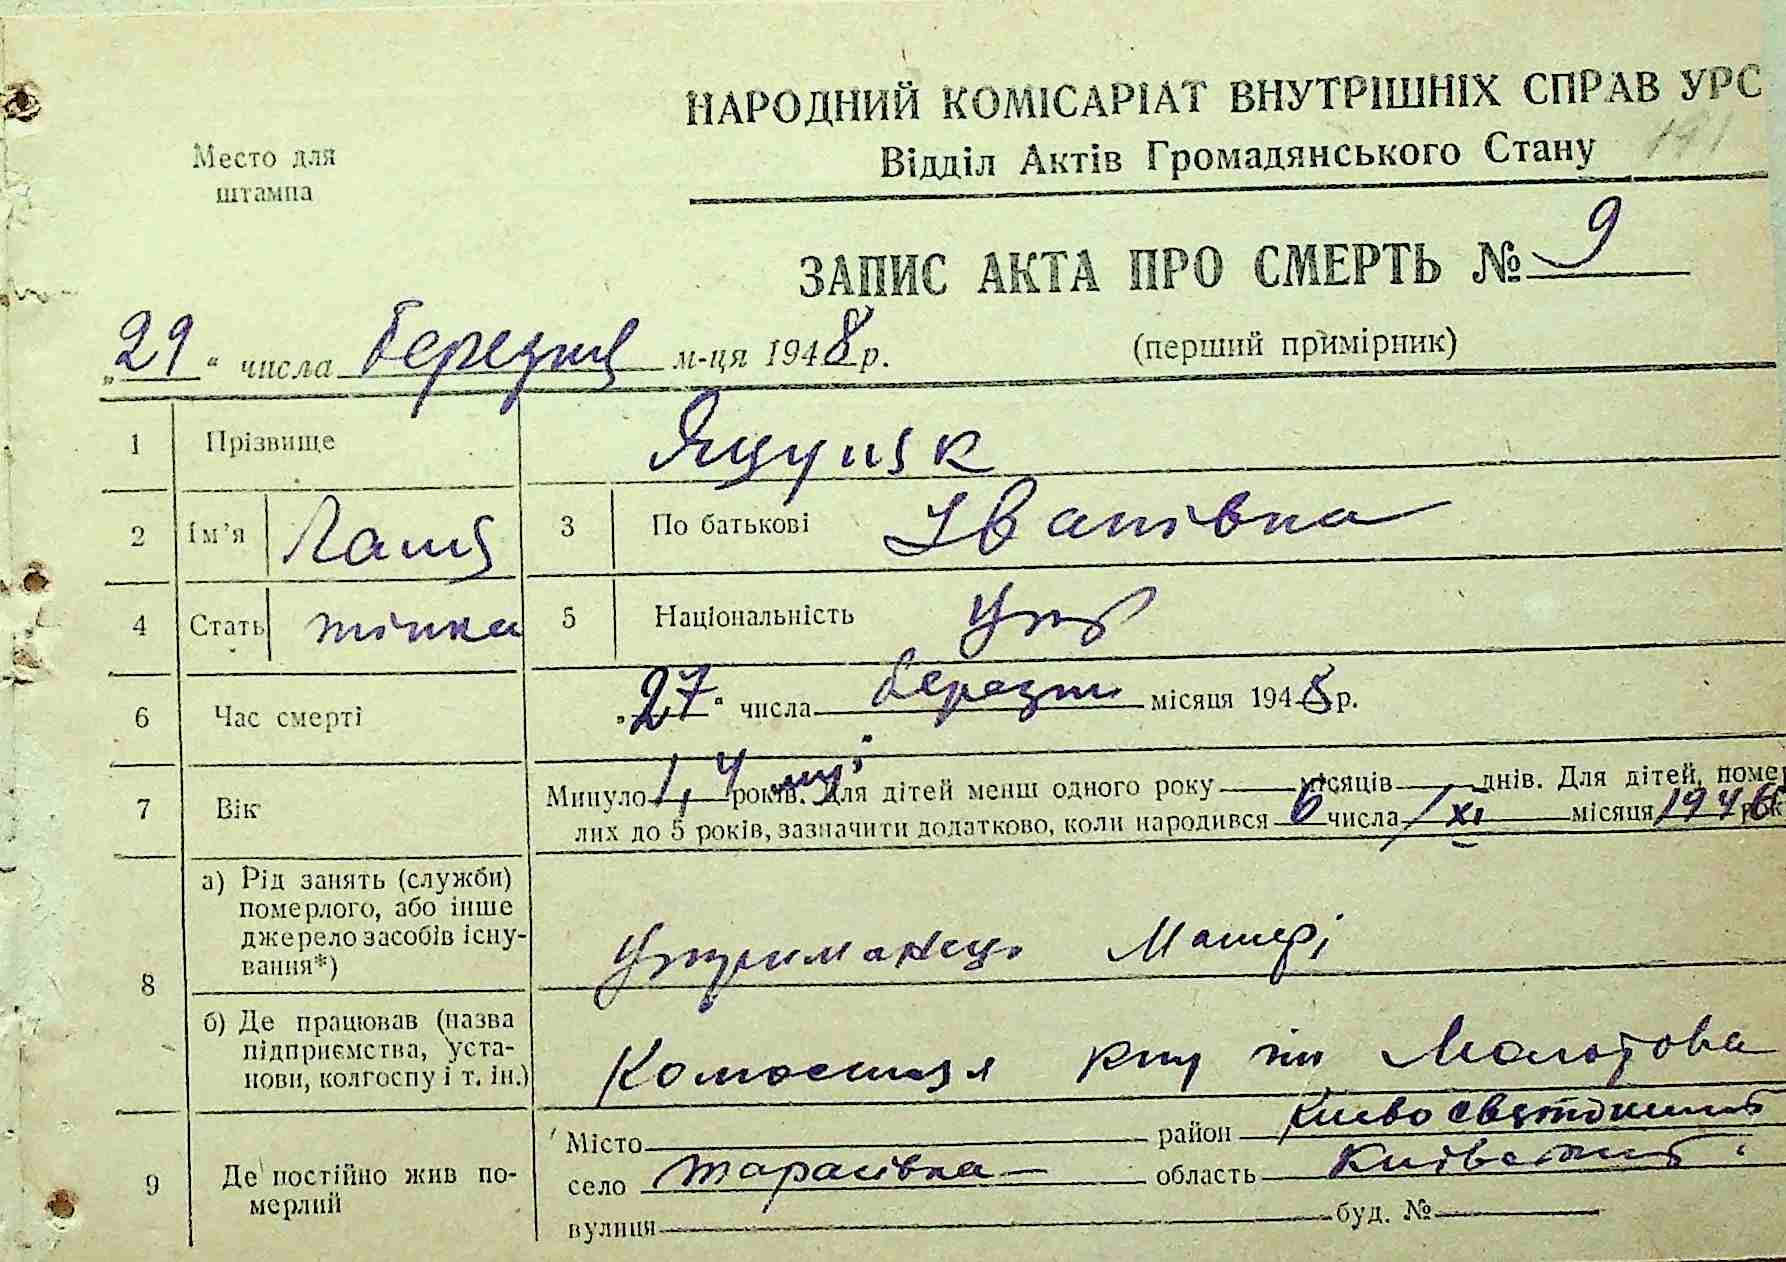 НАРОДНИЙ КОМІСАРІАТ ВНУТРІШНІХ СПРАВ УРС
Место для
штампа
Відділ Актів Громадянського Стану
191
ЗАПИС АКТА ПРО СМЕРТЬ № 9
„29“ числа березня м-ця 1948 р.
(перший примірник)
1 Прізвище Яцуняк
2 Ім’я Галя 3 По батькові Іванівна
4 Стать жінка 5 Національність Укр
6 Час смерті „27“ числа березня місяця 1948 р.
7 Вік Минуло 1,4 років. Для дітей менш одного року місяців днів. Для дітей, помер
лих до 5 років, зазначити додатково, коли народився 6 числа / XI місяця 1946 рок
8 а) Рід занять (служби)
померлого, або інше
джерело засобів існу-
вання*)
Утриманець Матері
б) Де працював (назва
підприємства, уста-
нови, колгоспу і т. ін.)
Колгосниця им Молотова
9 Де постійно жив по-
мерлий
Місто район Києво Святошинський
село Тарасівка область Київський
вулиця буд. №